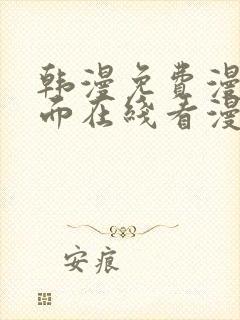 韩漫免费漫
而在线看漫
安痕